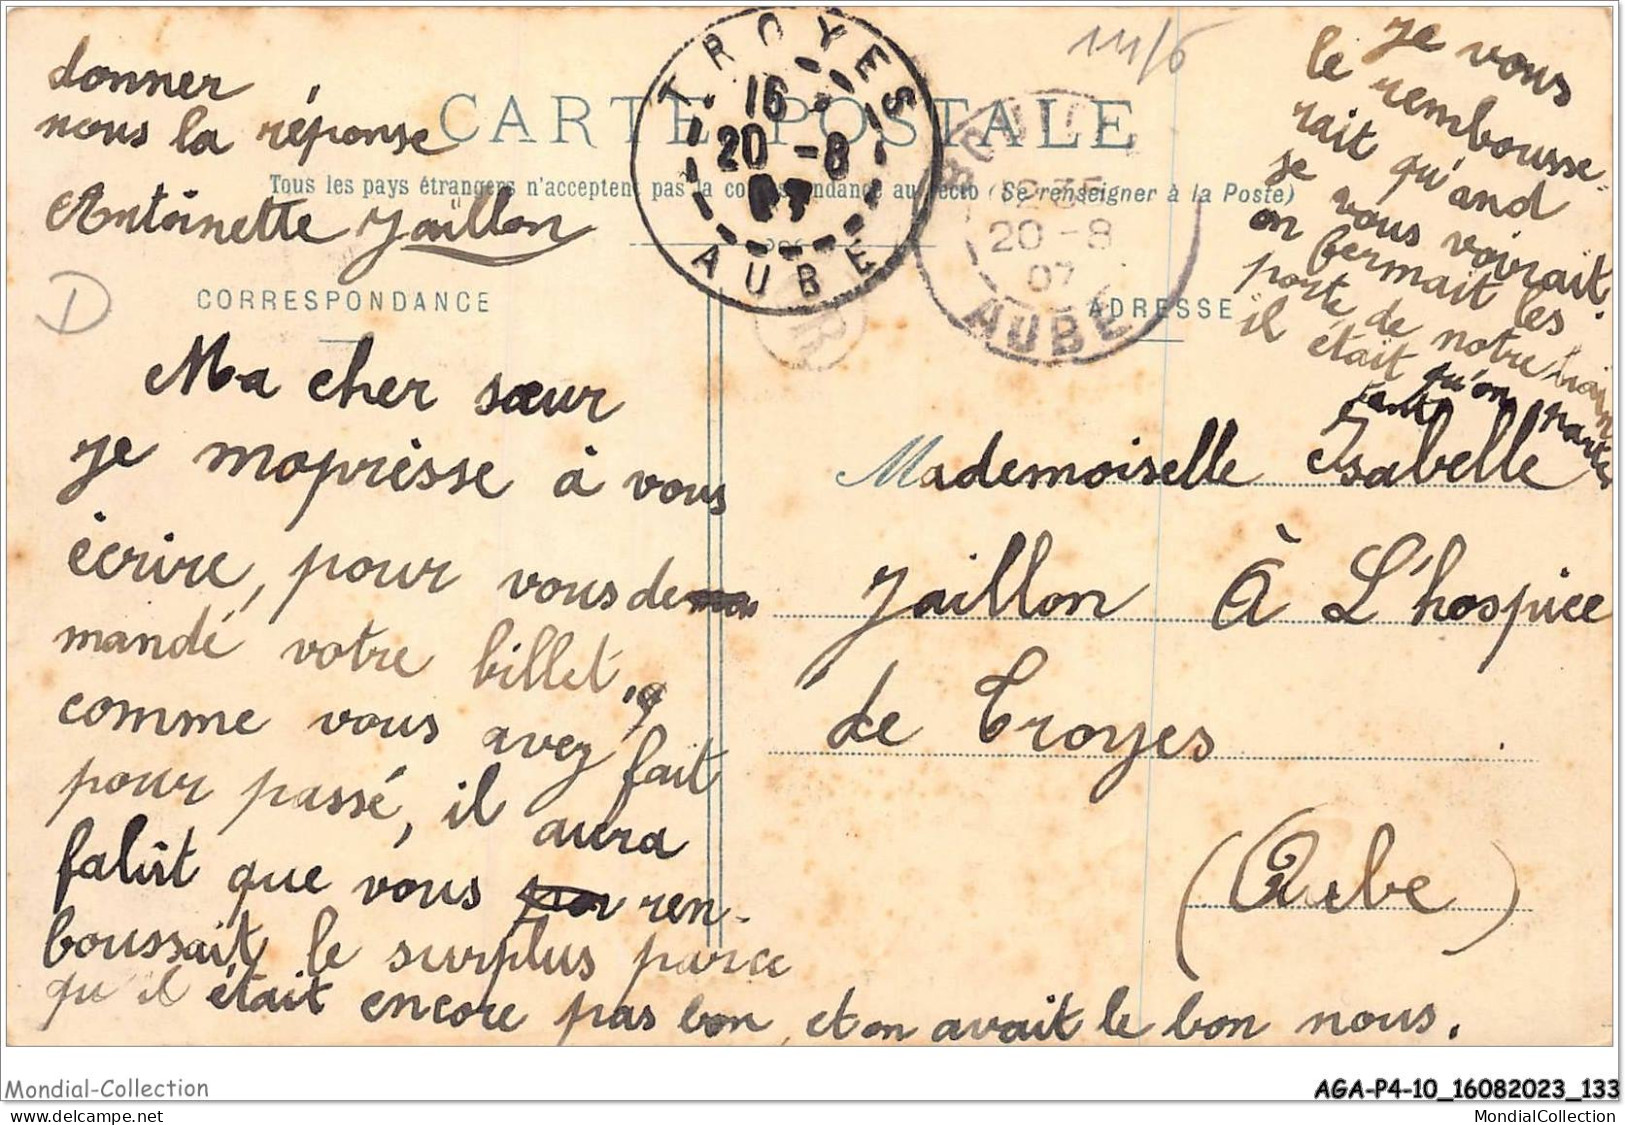 donner
nous la réponse
Antoinette Jaillon
CARTE POSTALE
Tous les pays étrangers n'acceptent pas la correspondance au recto (Se renseigner à la Poste)
TROYES
16
20 -8
07
AUBE
12 35
20 -8
07
AUBE
D
CORRESPONDANCE
ADRESSE
Ma cher sœur
je moprèsse à vous
écrire, pour vous de
mandé votre billet,
comme vous avez fait
pour passé, il aura
falût que vous ren-
boussait le surplus parce
qu'il était encore pas bon, et on avait le bon nous.
Je vous
le rembousse-
rait qu'and
je vous voirait.
on fermait les
porte de notre train
il était qu'on parte
Mademoiselle Isabelle
Jaillon À L'hospice
de Troyes
(Aube)
Mondial-Collection
AGA-P4-10_16082023_133
www.delcampe.net
MondialCollection